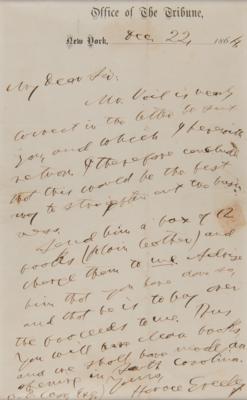 Office of The Tribune,
New York, Dec. 22, 186
My Dear Sir:
Mr. Vail is nearly
correct in the letter he sent
you and which I herewith
return. I therefore conclude
that this would be the best
way to straighten out the busi-
ness.
Send him a box of
books (plain leather) and
charge them to me. Advise
him that you have done so,
and that he is to pay over
the proceeds to me. Thus
you will have clean books
and we shall have made an
opening in South Carolina.
Yours,
Horace Greeley